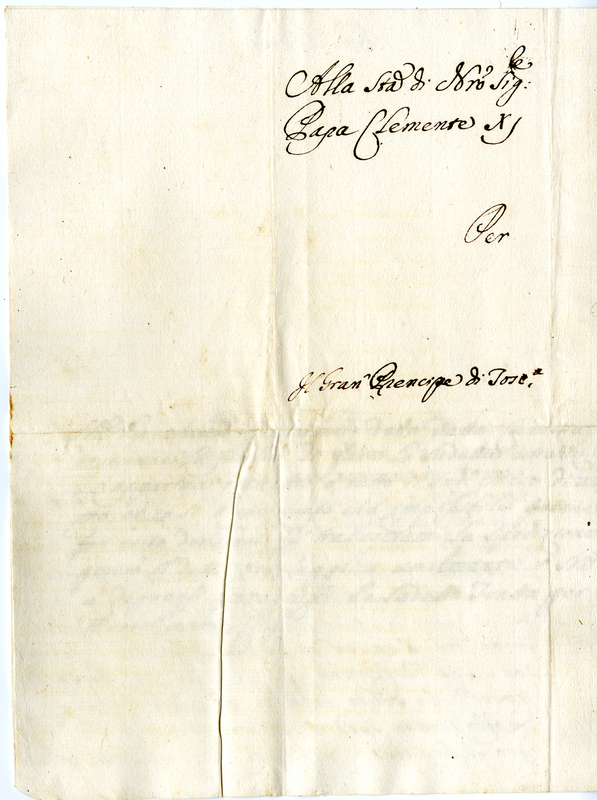 Alla Sta di Nro Sig:re
Papa Clemente XI
Per
Il Gran Prencipe di Tosc.a